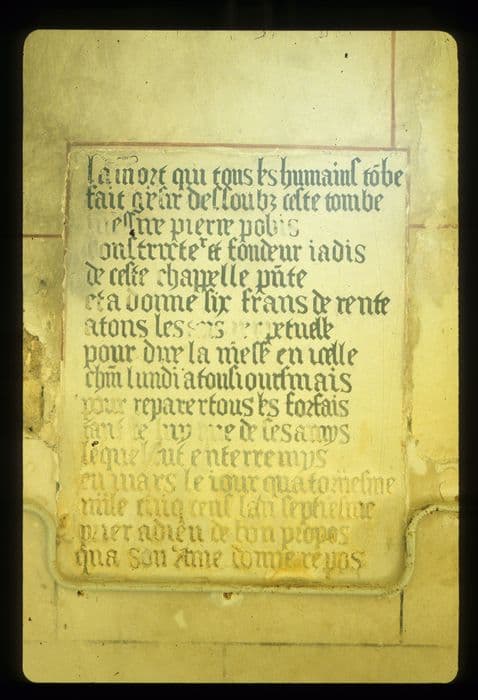 la mort qui tous les humains tõbe
fait gesir dessoubz ceste tombe
messire pierre pobis
constructeʳ et fõndeur iadis
de ceste chappelle pñte
et a donne six frans de rente
a tons les
pour dire la messe en icelle
chũn lundi a tousiours mais
pour reparer tous les forfais
de ses
lequel fut enterre
en mars le iour quatorziesme
mile cinq cens lan septiesme
prier a dieu de bon propos
qua son ame donne repos